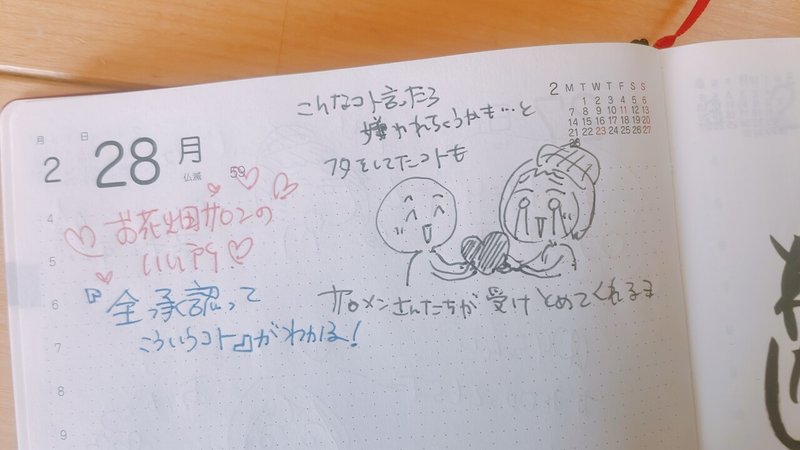 月 日
2 28 月
仏滅 59
お花畑サロンの
いいトコ!
『全承認って
こういうコト』がわかる!
こんなコト言ったら
嫌われちゃうかも…と
フタをしてたコトも
サロメンさんたちが 受けとめてくれるよ
2 M T W T F S S
1 2 3 4 5 6
7 8 9 10 11 12 13
14 15 16 17 18 19 20
21 22 23 24 25 26 27
28
4
5
6
7
8
9